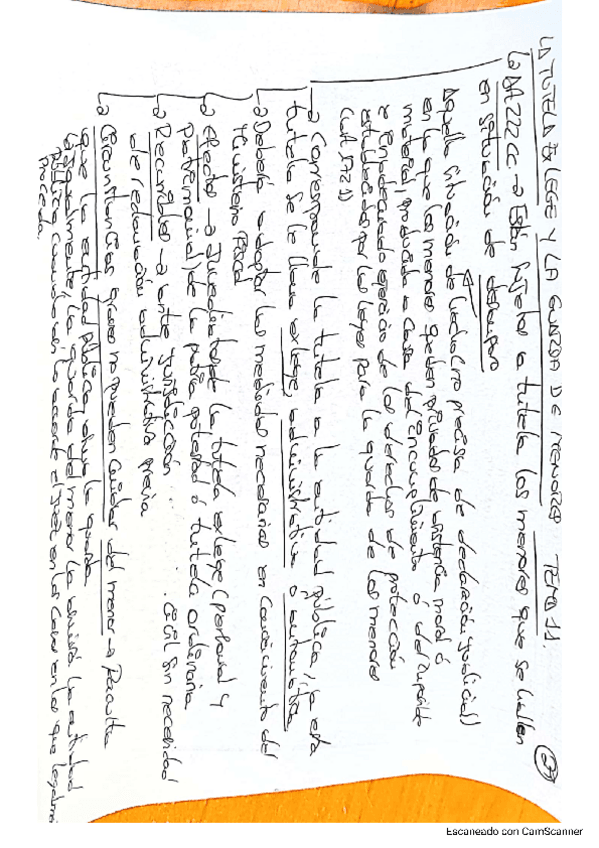 LA TUTELA EX LEGE Y LA GUARDA DE MENORES TEMA 11.
↳ Art 222 CC → Están sujetos a tutela los menores que se hallen
en situación de desamparo
Aquella situación de hecho (no precisa de declaración judicial)
en la que los menores queden privados de asistencia moral ó
material, producida a causa del incumplimiento ó del imposible
e inadecuado ejercicio de los deberes de protección
establecidos por las leyes para la guarda de los menores
(art 172 1)
→ Corresponde la tutela a la entidad pública, a esta
tutela se le llama ex lege, administrativa ó automática
↳ Deberá adoptar las medidas necesarias en conocimiento del
Ministerio Fiscal
↳ Efectos → Suspende la tutela ex lege (personal y
patrimonial) de la patria potestad ó tutela ordinaria
↳ Recurribles → ante jurisdicción Civil sin necesidad
de reclamación administrativa previa
↳ Circunstancias graves no pueden cuidar del menor →
que la entidad Pública asuma la guarda.
↳ Igualmente la guarda del menor la asumirá la entidad
Pública cuando así lo acuerde el Juez en los casos en los que legalmente
proceda.
Escaneado con CamScanner